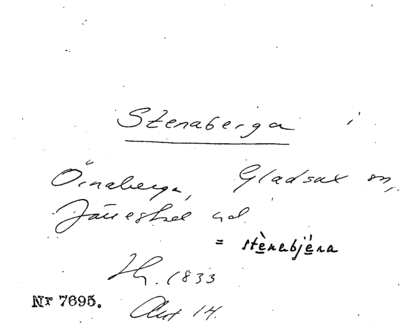 Stenaberga i
Örnaberga, Gladsax sn,
Järrestad hd
= stènabjèra
Hh. 1833
Akt 14.
Nr 7695.